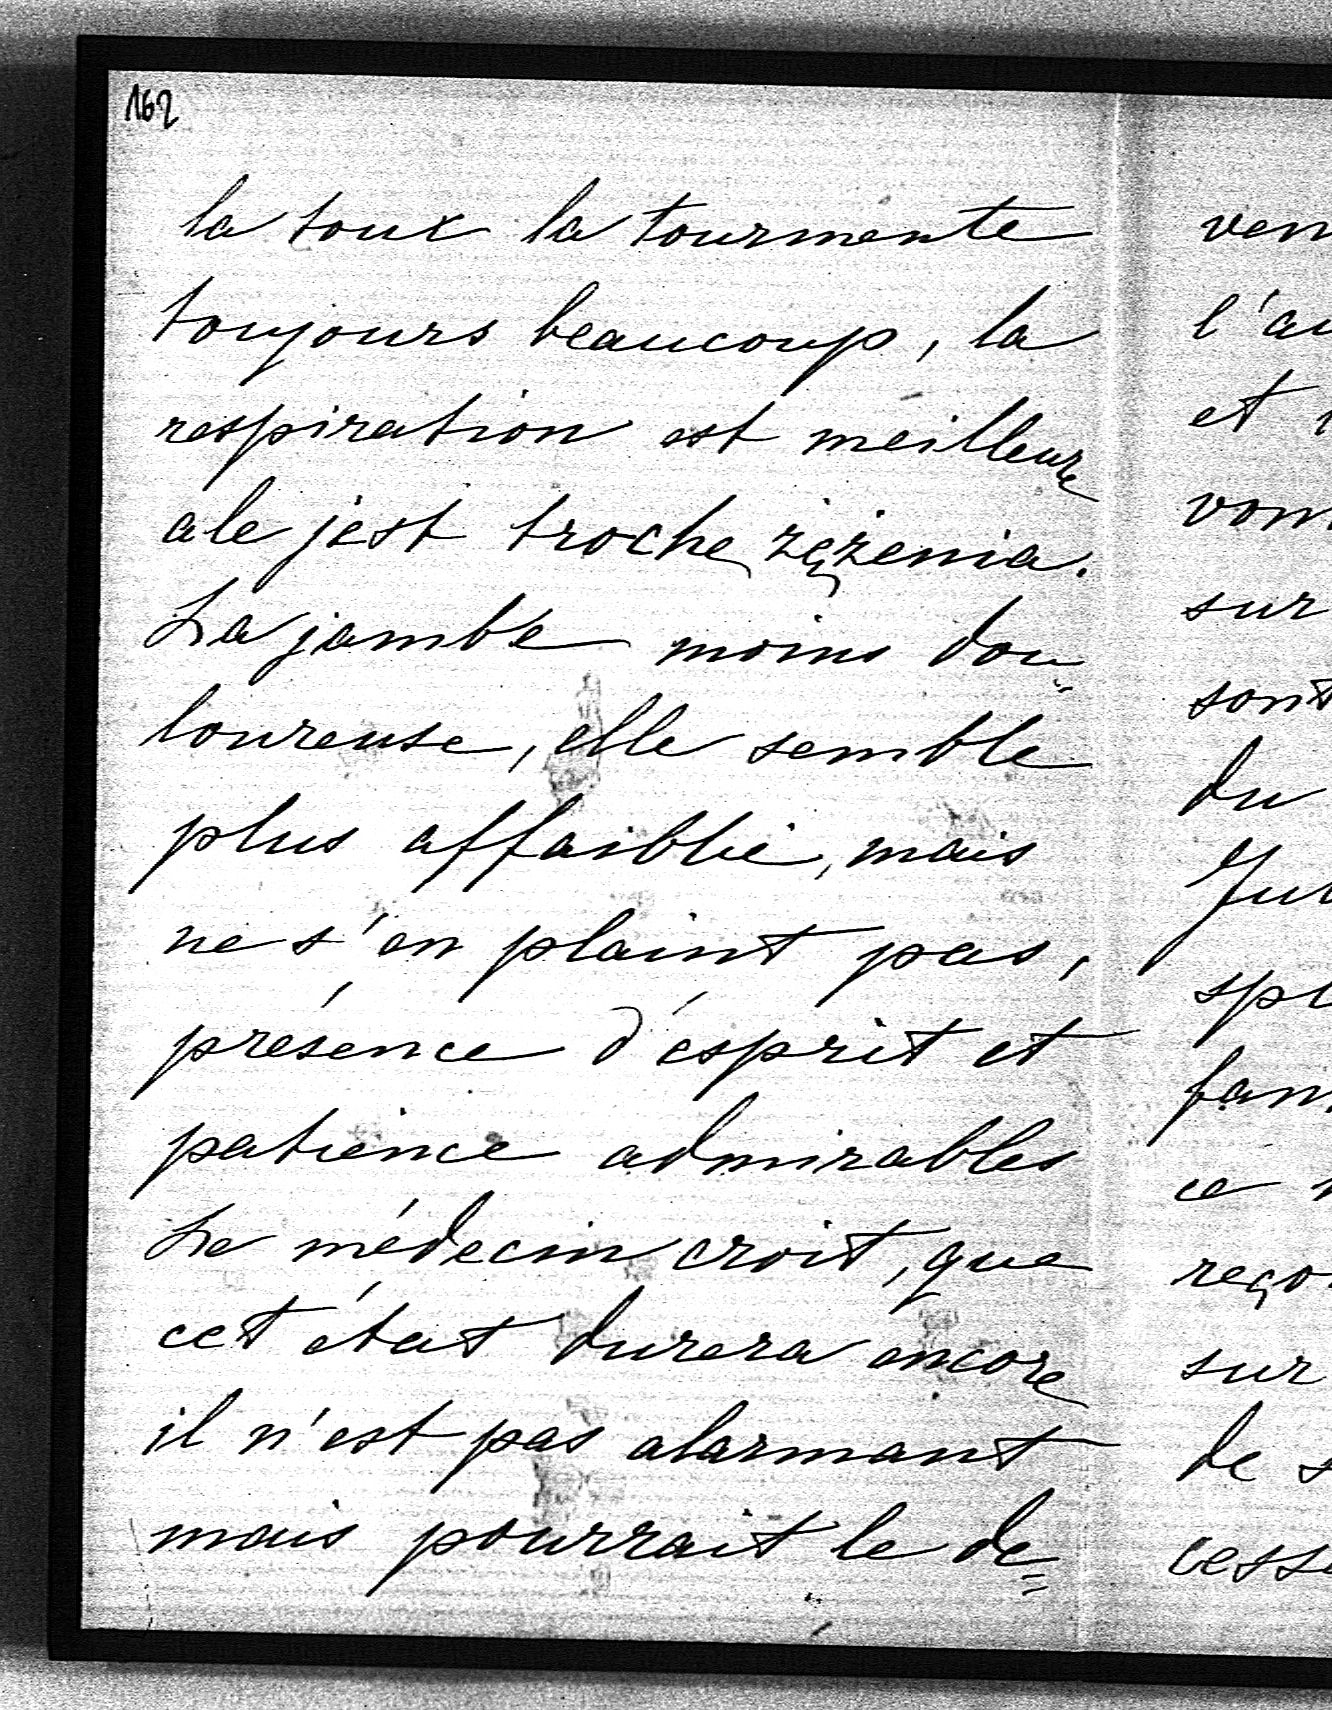 162
la toux la tourmente
toujours beaucoup, la
respiration est meilleure
ale jest trochę rzężenia.
La jambe moins dou-
loureuse, elle semble
plus affaiblie, mais
ne s'en plaint pas,
présence d'esprit et
patience admirables
Le médecin croit, que
cet état durera encore
il n'est pas alarmant
mais pourrait le de=
ven
l'au
et
vom
sur
sont
du
spl
fam
ce
reço
sur
de s
cesse